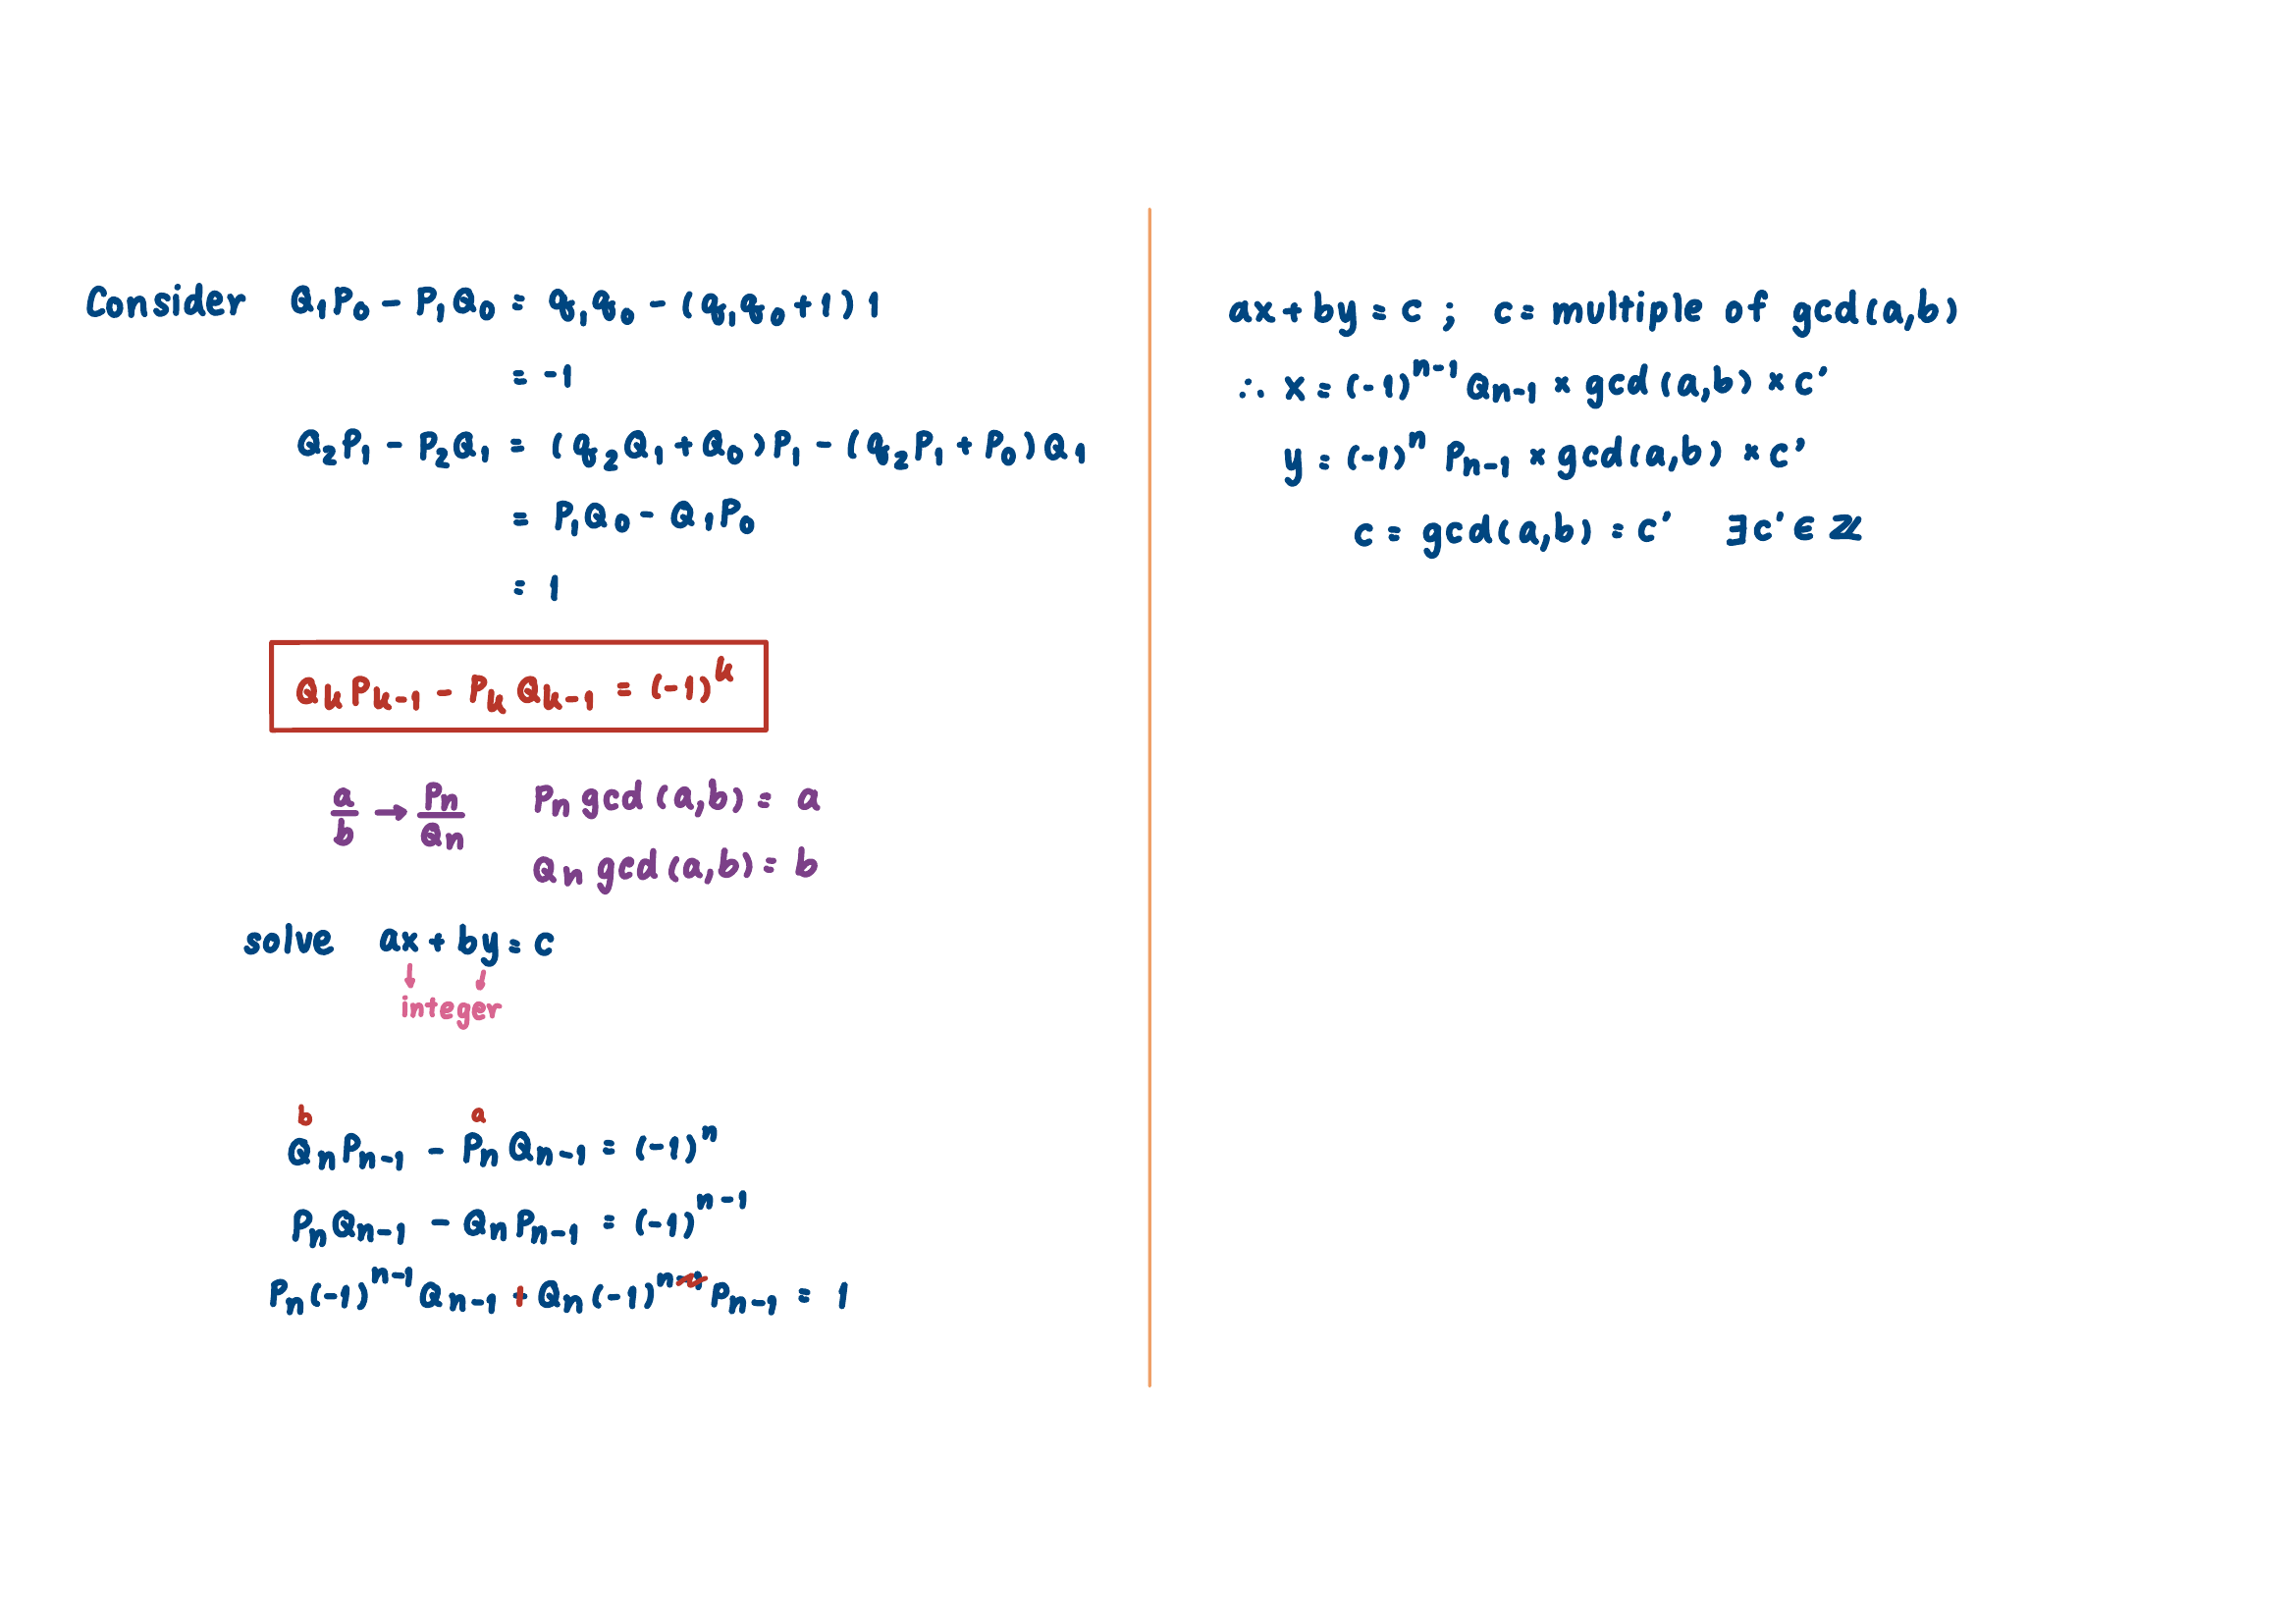 Consider Q₁P₀ - P₁Q₀ = q₁q₀ - (q₁q₀+1)1
= -1
Q₂P₁ - P₂Q₁ = (q₂Q₁+Q₀)P₁ - (q₂P₁+P₀)Q₁
= P₁Q₀ - Q₁P₀
= 1
QₖPₖ₋₁ - PₖQₖ₋₁ = (-1)ᵏ
a/b → Pₙ/Qₙ Pₙ gcd(a,b) = a
Qₙ gcd(a,b) = b
solve ax + by = c
integer
b a
QₙPₙ₋₁ - PₙQₙ₋₁ = (-1)ⁿ
PₙQₙ₋₁ - QₙPₙ₋₁ = (-1)ⁿ⁻¹
Pₙ(-1)ⁿ⁻¹Qₙ₋₁ + Qₙ(-1)ⁿPₙ₋₁ = 1
ax + by = c ; c = multiple of gcd(a,b)
∴ x = (-1)ⁿ⁻¹ Qₙ₋₁ × gcd(a,b) × c'
y = (-1)ⁿ Pₙ₋₁ × gcd(a,b) × c'
c = gcd(a,b) = c' ∃c' ∈ ℤ